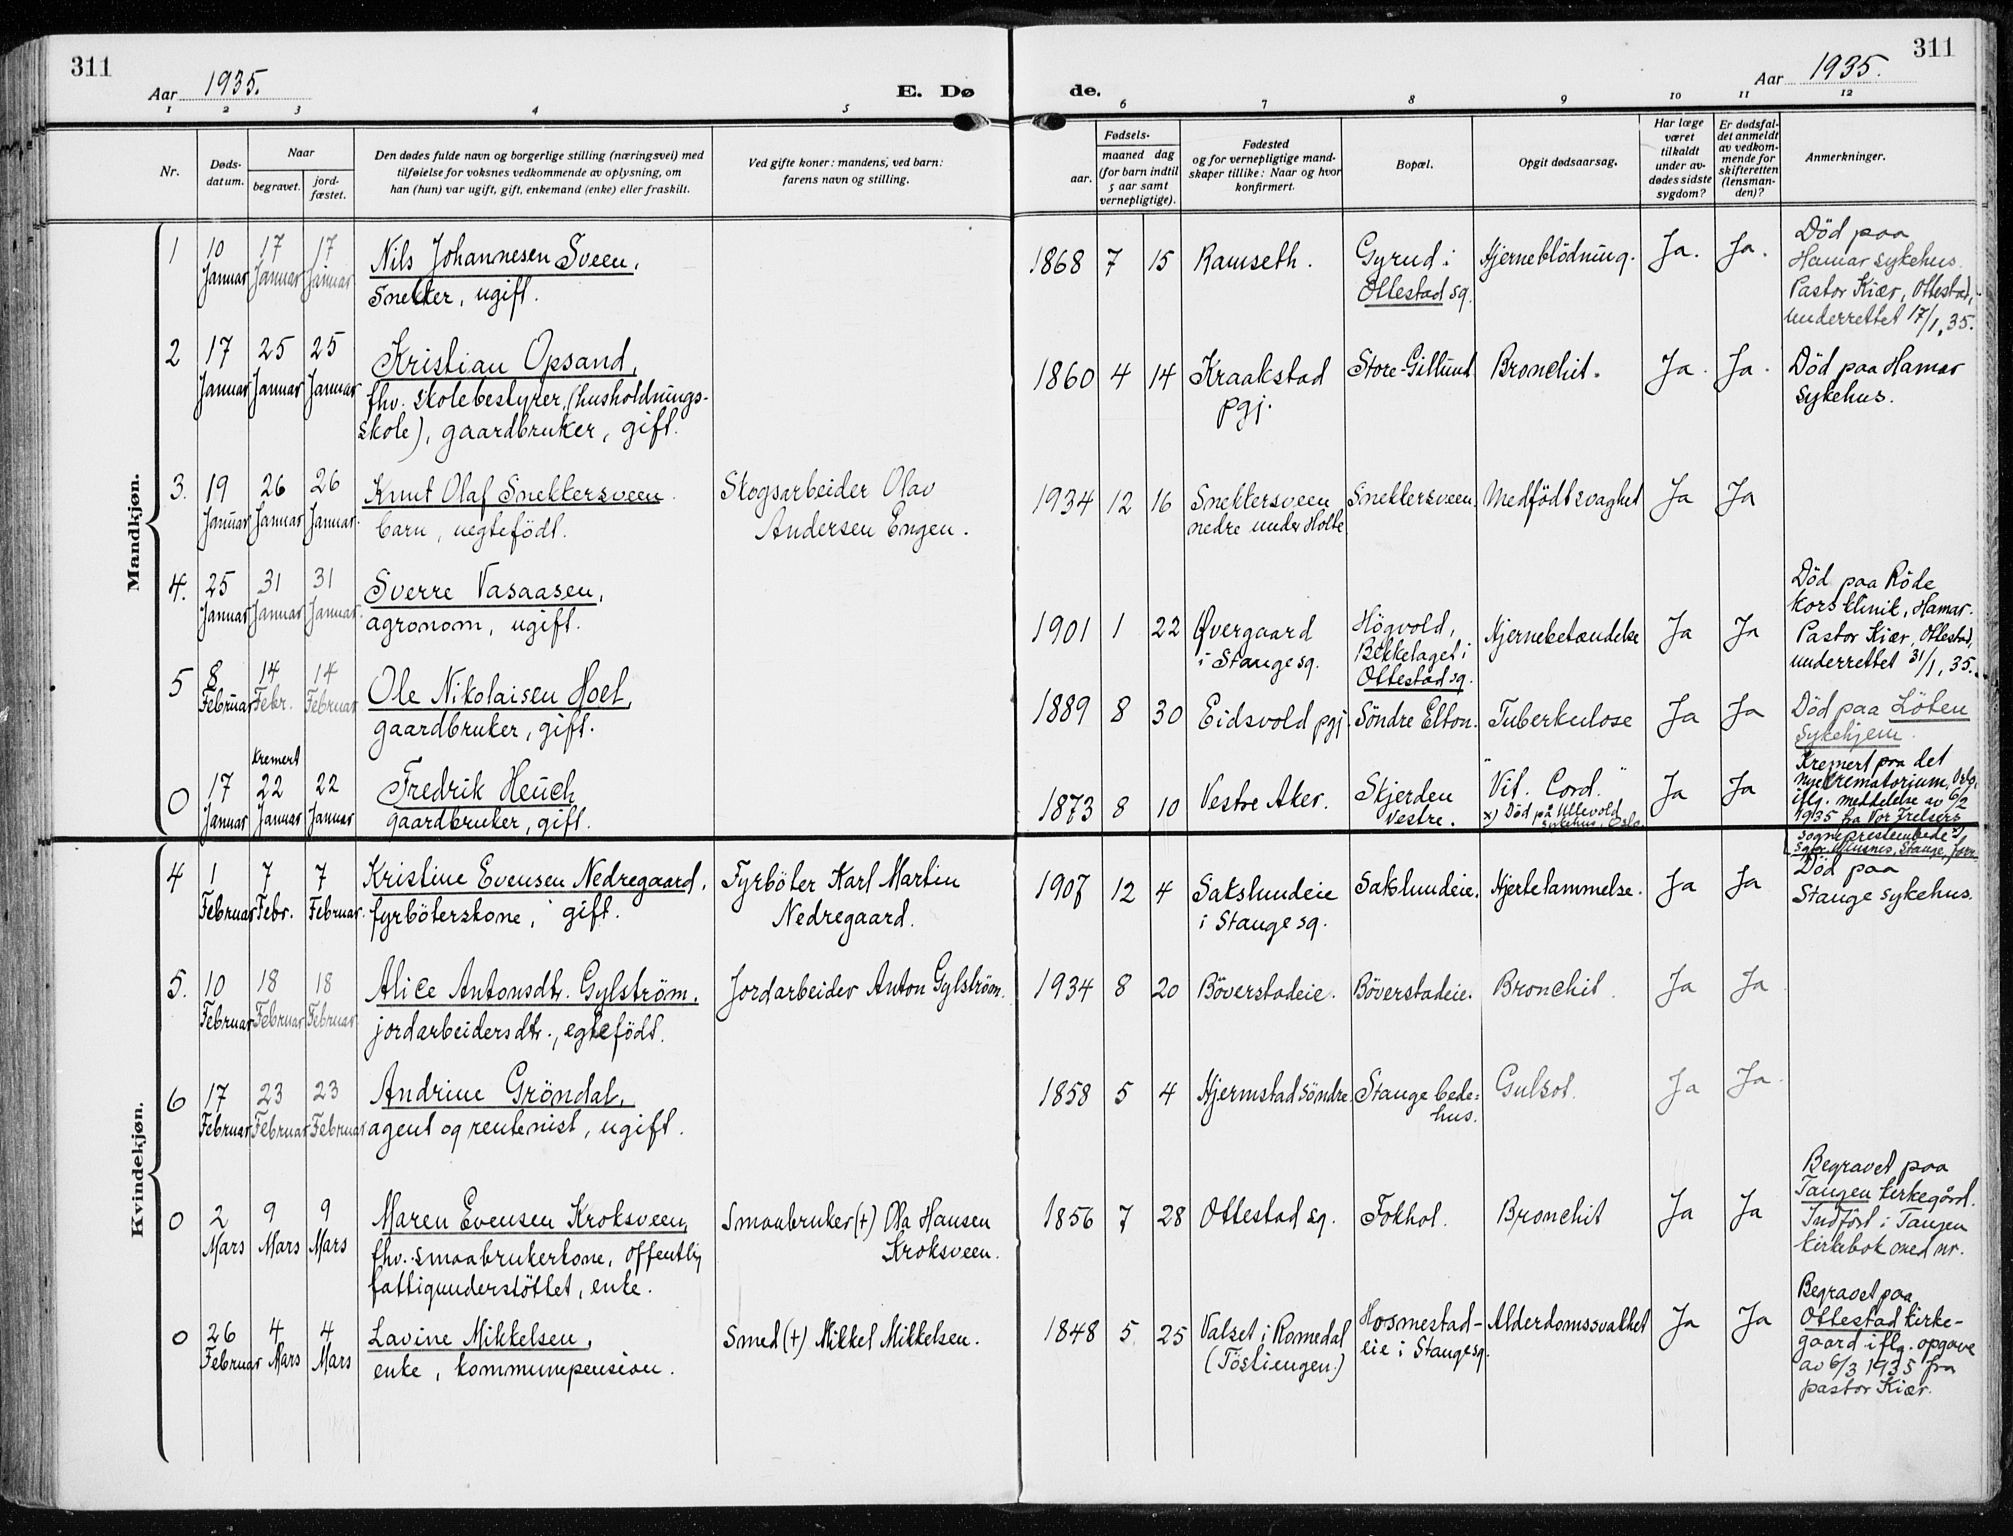 311
Aar 1935.
E. Dø
de.
Aar 1935.
311
1 2 3 4 5 6 7 8 9 10 11 12
Nr.
Døds-
datum.
Naar
begravet.
jord-
fæstet.
Den dødes fulde navn og borgerlige stilling (næringsvei) med
tilføielse for voksnes vedkommende av oplysning, om
han (hun) var ugift, gift, enkemand (enke) eller fraskilt.
Ved gifte koner: mandens, ved barn:
farens navn og stilling.
Fødsels-
aar.
maaned dag
(for barn indtil
5 aar samt
vernepligtige).
Fødested
og for vernepligtige mand-
skaper tillike: Naar og hvor
konfirmert.
Bopæl.
Opgit dødsaarsag.
Har læge
været
tilkaldt
under av-
dødes sidste
sygdom?
Er dødsfal-
det anmeldt
av vedkom-
mende for
skifteretten
(lensman-
den)?
Anmerkninger.
Mandkjøn.
1
10
Januar
17
Januar
17
Januar
Nils Johannesen Sveen,
Snekker, ugift.
1868 7 15
Ramseth.
Gyrud i
Ottestad sg.
Hjerneblödning.
Ja.
Ja.
Död paa
Hamar sykehus.
Pastor Kiær, Ottestad,
underrettet 17/1, 35.
2
17
Januar
25
Januar
25
Januar
Kristian Opsand,
fhv. skolebestyrer (husholdnings-
skole), gaardbruker, gift.
1860 4 14
Kraakstad
pgj.
Store-Gillund
Bronchit.
Ja.
Ja.
Död paa Hamar
sykehus.
3.
19
Januar
26
Januar
26
Januar
Knut Olaf Snekkersveen.
barn, uegtefödt.
Skogsarbeider Olav
Andersen Engen.
1934 12 16
Snekkersveen
nedre under Holte
Snekkersveen.
Medfödt svaghet
Ja
Ja
4.
25
Januar
31
Januar
31
Januar
Sverre Vasaasen,
agronom, ugift.
1901 1 22
Övergaard
i Stange sg.
Högvold,
Bekkelaget i
Ottestad sg.
Hjernebetændelse
Ja
Ja
Död paa Röde
kors klinik, Hamar.
Pastor Kiær, Ottestad,
underrettet 31/1, 35.
5
8
Februar
14
Febr.
14
Februar
Ole Nikolaisen Hoel,
gaardbruker, gift.
1889 8 30
Eidsvold pgj.
Söndre Elton.
Tuberkulose
Ja
Ja
Död paa Löten
sykehjem.
0
17
Januar
Kremert
22
Januar
22
Januar
Fredrik Heuch
gaardbruker, gift.
1873 8 10
Vestre Aker.
Skjerden
Vestre.
"Vit. Cord."
x) Död på Ullevold
sykehus, Oslo.
Ja
Ja
Kremert paa det
nye crematorium, Oslo,
iflg. meddelelse av 6/2
1935 fra Vor Frelsers
sogneprestembede
Kvindekjøn.
4
1
Februar
7
Febr.
7
Februar
Kristine Evensen Nedregaard,
fyrböterskone, gift.
Fyrböter Karl Martin
Nedregaard.
1907 12 4
Sakslundeie
i Stange sg.
Sakslundeie.
Hjertelammelse.
Ja
Ja
Död paa
Stange sykehus.
5.
10
Februar
18
Februar
18
Februar
Alice Antonsdtr. Gylström,
jordarbeidersdtr., egtefödt.
Jordarbeider Anton Gylström.
1934 8 20
Böverstadeie.
Böverstadeie.
Bronchit.
Ja
Ja
6
17
Februar
23
Februar
23
Februar
Andrine Gröndal,
agent og rentenist, ugift.
1858 5 4
Hjermstad söndre.
Stange bede-
hus.
Gulsot.
Ja
Ja
0
2
Mars
9
Mars
9
Mars
Maren Evensen Kroksveen,
fhv. smaabrukerkone, offentlig
fattigunderstöttet, enke.
Smaabruker (+) Ola Hansen
Kroksveen.
1856 7 28
Ottestad sg.
Fokhol.
Bronchit
Ja
Ja
Begravet paa
Tangen kirkegård.
Indfört i Tangen
kirkebok med nr.
0
26
Februar
4
Mars
4
Mars
Lavine Mikkelsen,
enke, kommunepension.
Smed (+) Mikkel Mikkelsen.
1848 5. 25
Valset i Romedal
(Töstiengen.)
Hosmestad-
eie i Stange sg.
Alderdomssvakhet
Ja
Ja
Begravet paa
Ottestad kirke-
gaard iflg. opgave
av 6/3 1935 fra
pastor Kiær.